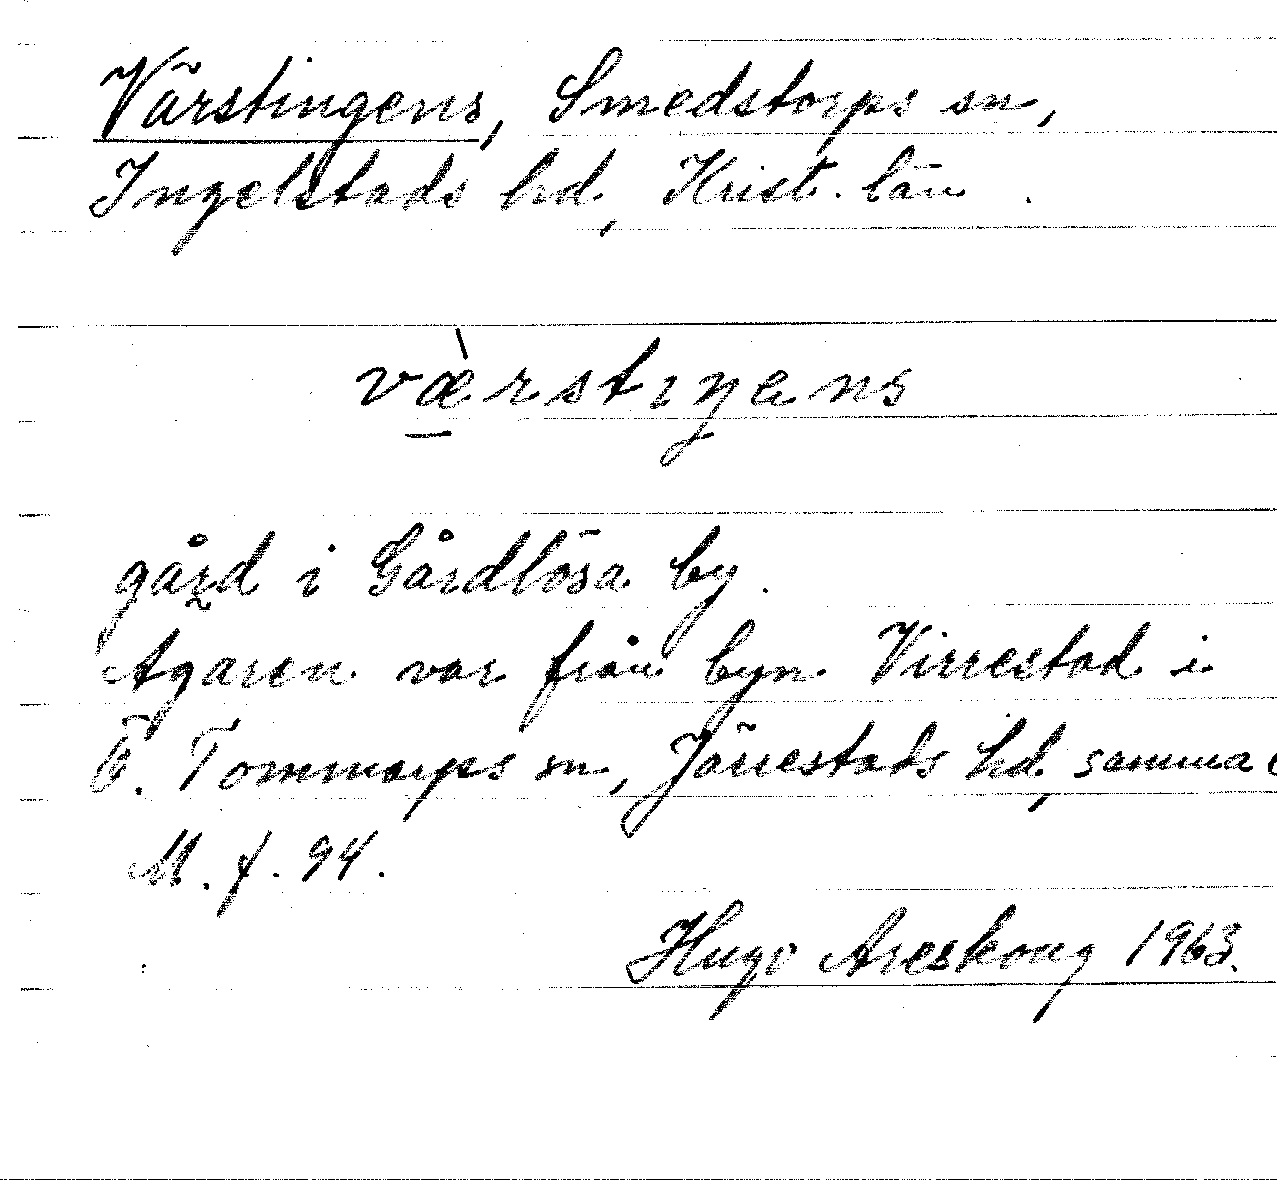 Värstingens, Smedstorps sn,
Ingelstads hd, Krist. län.
væ̀rstiŋens
gård i Gårdlösa by.
Ägaren var från byn Virrestad i
Ö. Tommarps sn, Järrestads hd, samma
M. f. 94.
Hugo Areskoug 1963.